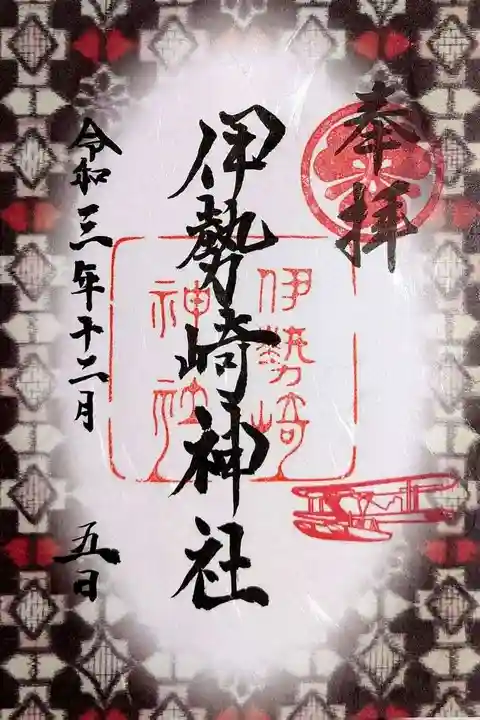 奉拝
伊勢崎神社
伊勢崎
神社
令和三年十二月 五日